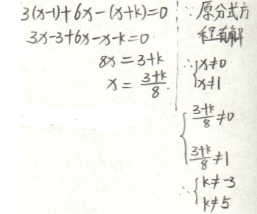 3(x-1)+6x-(x+k)=0
3x-3+6x-x-k=0
8x=3+k
x=\frac{3+k}{8}.
∵原分式方
程有解
∴{x≠0
x≠1
{\frac{3+k}{8}≠0
\frac{3+k}{8}≠1
∴{k≠-3
k≠5